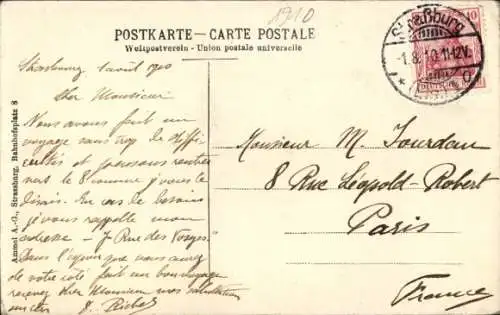 1910
POSTKARTE – CARTE POSTALE
Weltpostverein - Union postale universelle
Straßburg
-1.8.10.11-12V.
10
Strasbourg 1 aout 1910
Cher Monsieur
Nous avons fait un
voyage sans trop de diffi
cultés et pensons rentrer
vers le 8 comme je vous le
disais. En cas de besoin
je vous rappelle mon
adresse – 7 Rue des Vosges.
Dans l'espoir que vous aurez
de votre côté fait un bon voyage
recevez cher Monsieur mes salutations
Monsieur M. Jourdan
8 Rue Léopold-Robert
Paris
France
Ammel A.-G., Strassburg, Bahnhofsplatz 8